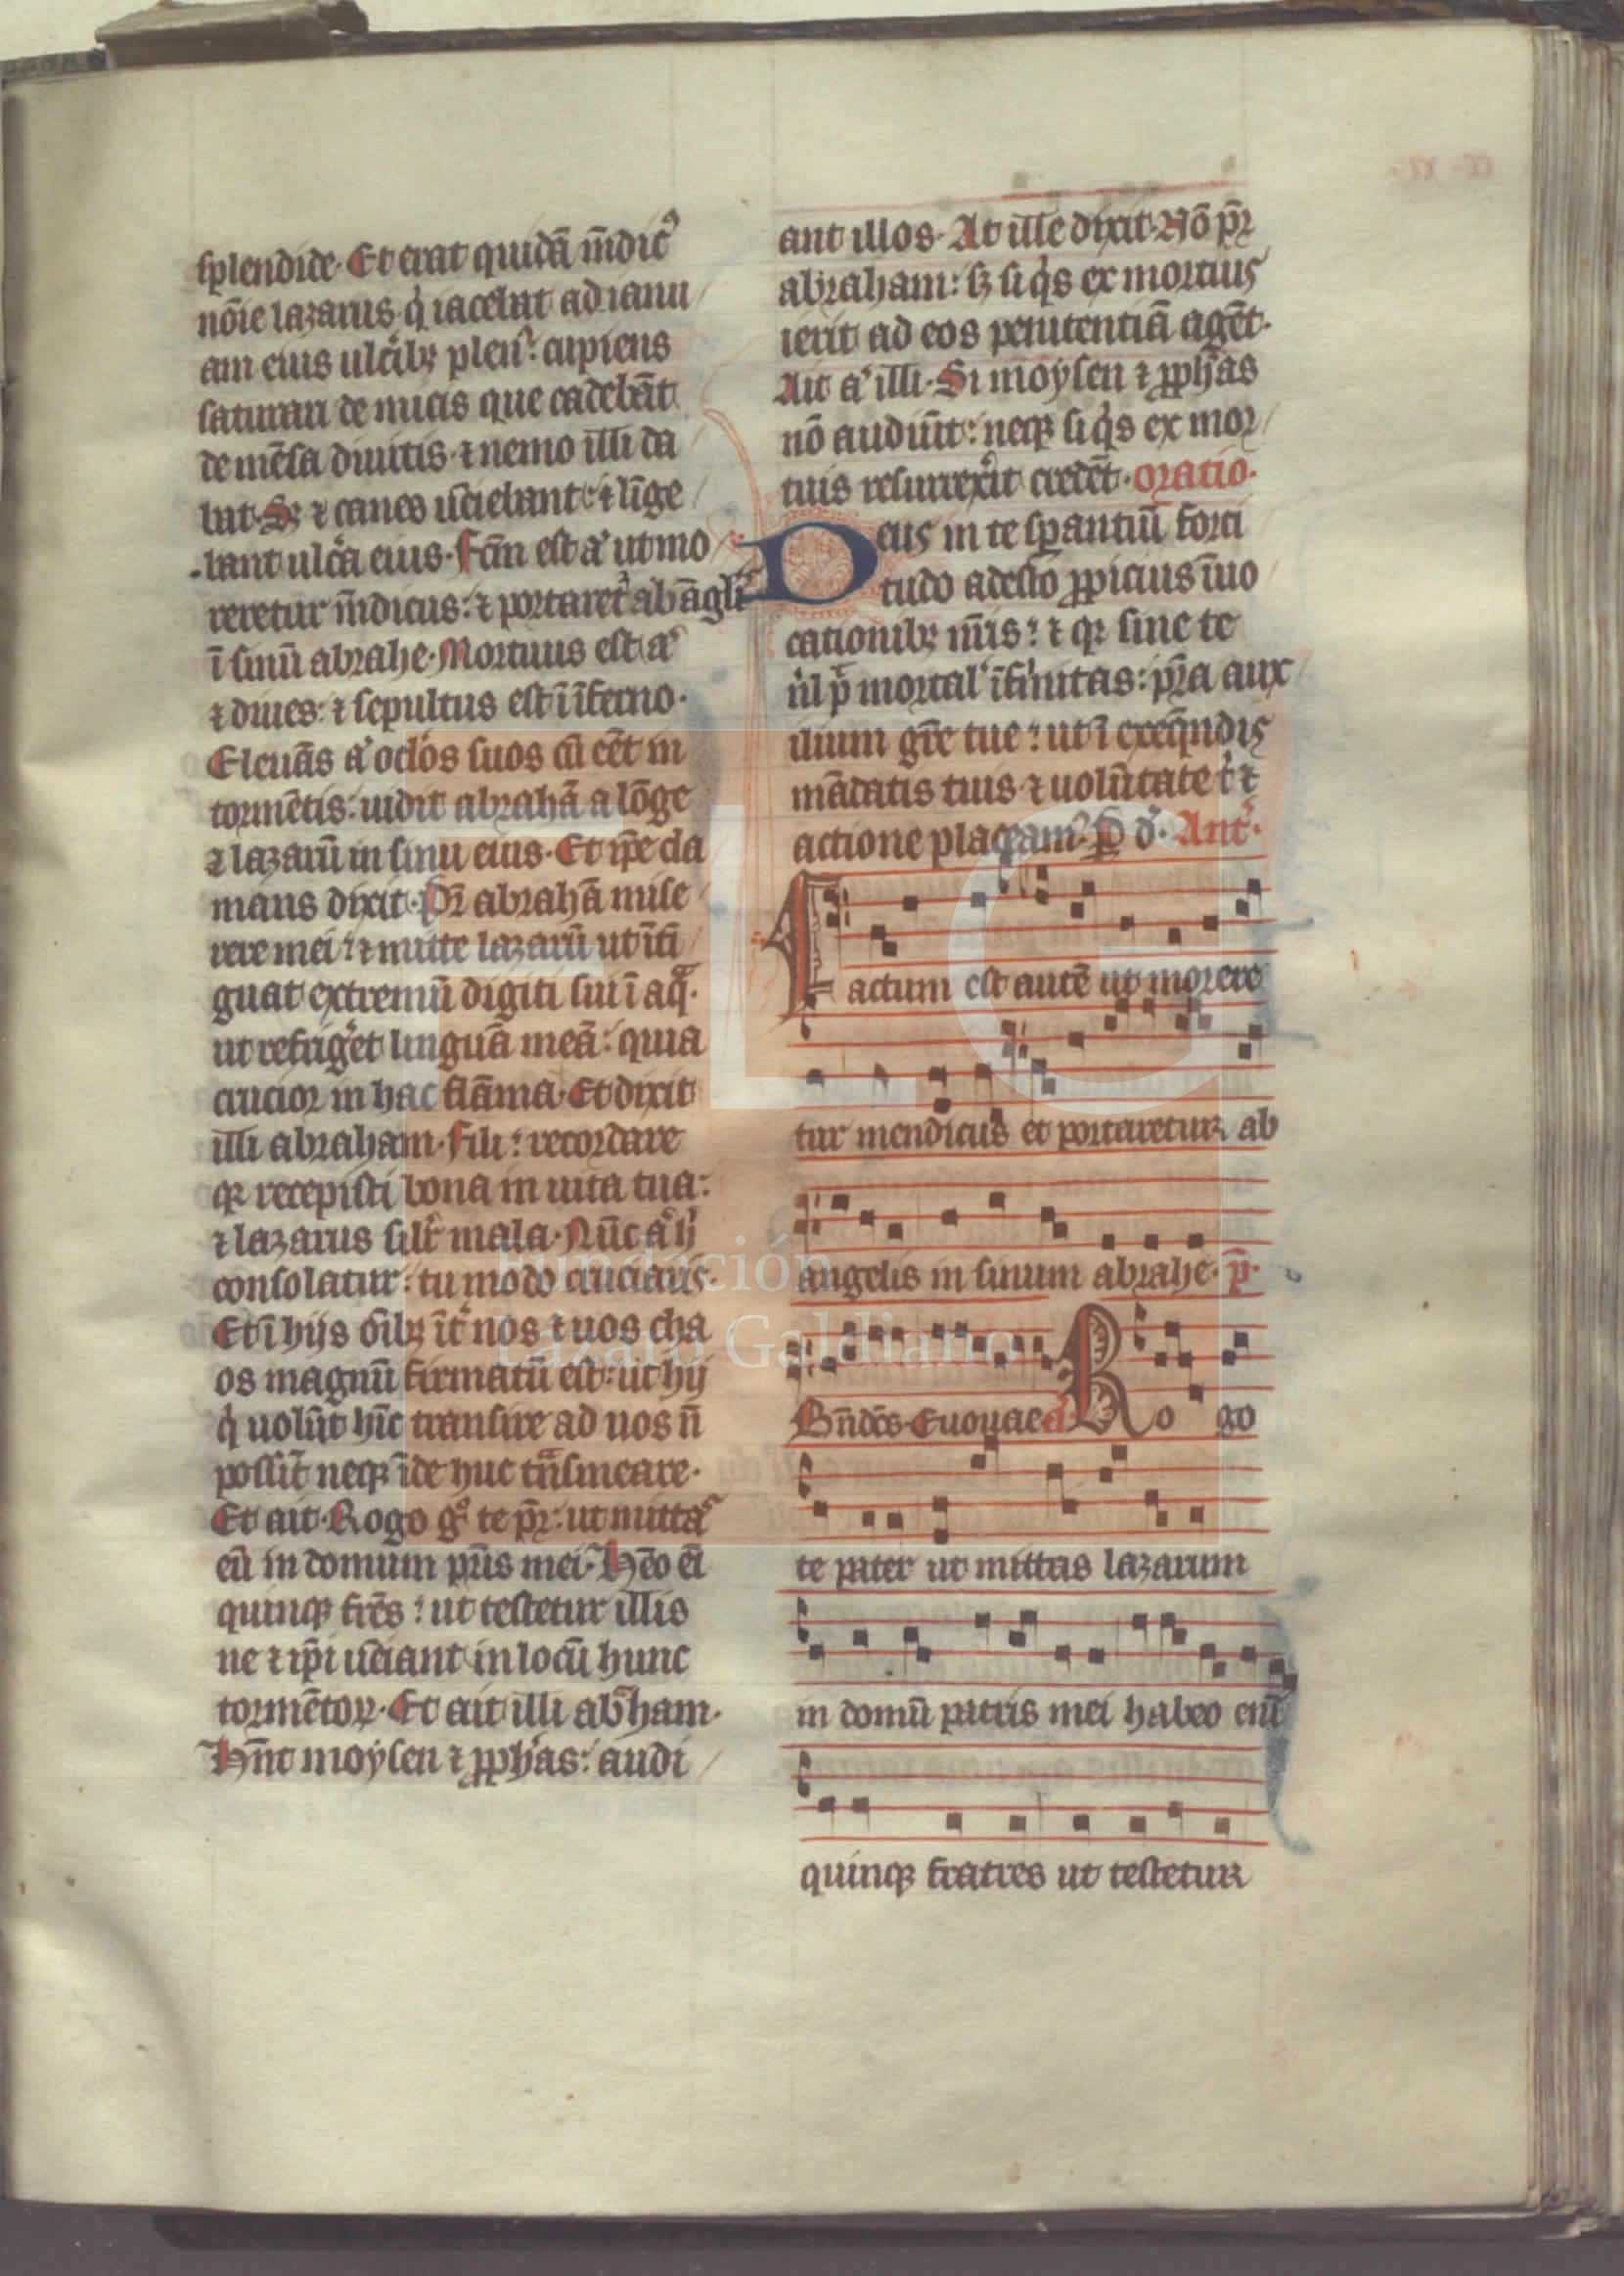 splendide. Et erat quidā m̄dic⁹
nōie lazarus q̇ iacebat ad ianu
am eius ulc̓ibꝫ plen⁹: cupiens
saturari de micis que cadebāt
de mēsa diuitis ⁊ nemo illi da
bat. Sꝫ ⁊ canes ueniebant: ⁊ līge
bant ulc̓a eius. Fc̄m est a͛ ut mo
reretur m̄dicus: ⁊ portaret᷑ ab āgl̓is
ī sinū abrahe. Mortuus est a͛
⁊ diues: ⁊ sepultus est ī īferno.
Eleuās a͛ oc̓los suos cū eēt in
tormētis: uidit abrahā a lōge
⁊ lazarū in sinu eius. Et ip̄e cla
mans dixit. Pr̄ abrahā mise
rere mei: ⁊ mitte lazarū ut īti
guat extremū digiti sui ī aqᷓ.
ut refrig̓et linguā meā: quia
crucior in hac flāma. Et dixit
illi abraham. Fili: recordare
qꝛ recepisti bona in uita tua:
⁊ lazarus silr̄ mala. Nūc a͛ h̓
consolatur: tu uero cruciaris.
Et ī hijs oīibꝫ īt̓ nos ⁊ uos cha
os magnū firmatū est: ut hij
q̇ uolūt hīc transire ad uos n̄
possīt neqꝫ īde huc tn̄smeare.
Et ait. Rogo g° te pr̄: ut mittas
eū in domum pr̄is mei. Hēo ei
quinqꝫ fr̄es: ut testetur illis
ne ⁊ ip̄i ueniant in locū hunc
tormētoꝝ. Et ait illi ab̓ham.
Hn̄t moysen ⁊ ꝓph̓as: audi
ant illos. At ille dixit. Nō pr̄
abraham: sꝫ si q̇s ex mortuis
ierit ad eos penitentiā agēt.
Ait a͛ illi. Si moysen ⁊ ꝓph̓as
nō audiūt: neqꝫ si q̇s ex mor
tuis resurrex̓it credēt. oratio.
Deus in te sꝑantiū forti
tudo adesto ꝓpicius īuo
cationibꝫ nr̄is: ⁊ qꝛ sine te
n̓l p̄t mortal̓ īfirmitas: pr̄a aux
ilium gr̄e tue: ut ī exeq̄ndis
mādatis tuis ⁊ uolūtate t̓ ⁊
actione placeam⁹. Ꝑ d̓. Ant̓.
Factum est autē ut morere
tur mendicus et portaretur ab
angelis in sinum abrahe. p̄.
Bn̄dc̄s. Euouae. a Rogo
te pater ut mittas lazarum
in domū patris mei habeo enī
quinqꝫ fratres ut testetur
Fundación
Lázaro Galdiano